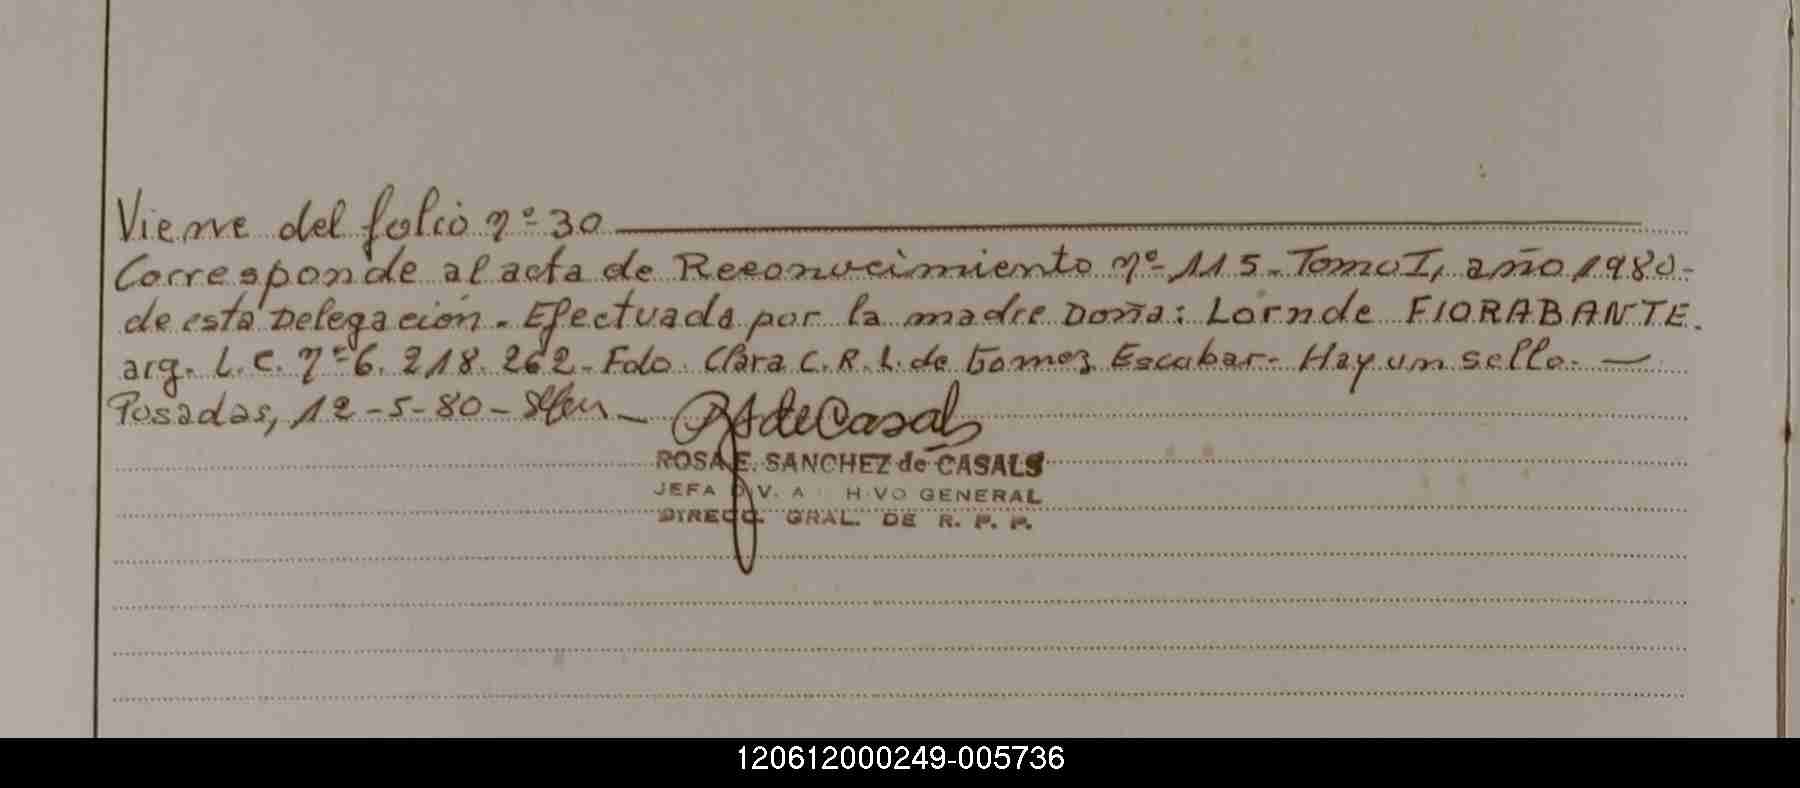 Viene del folio nº 30
Corresponde al acta de Reconocimiento nº 115. Tomo I, año 1980-
de esta Delegación. Efectuada por la madre Doña: Lornde FIORABANTE.
arg. L.C. nº 6.218.262. Fdo. Clara C.R.L. de Gomez Escubar- Hay un sello.-
Posadas, 12-5-80-
RSdeCasals
ROSA E. SANCHEZ de CASALS
JEFA DIV. A HIVO GENERAL
DIRECC. GRAL. DE R. P. P.
120612000249-005736